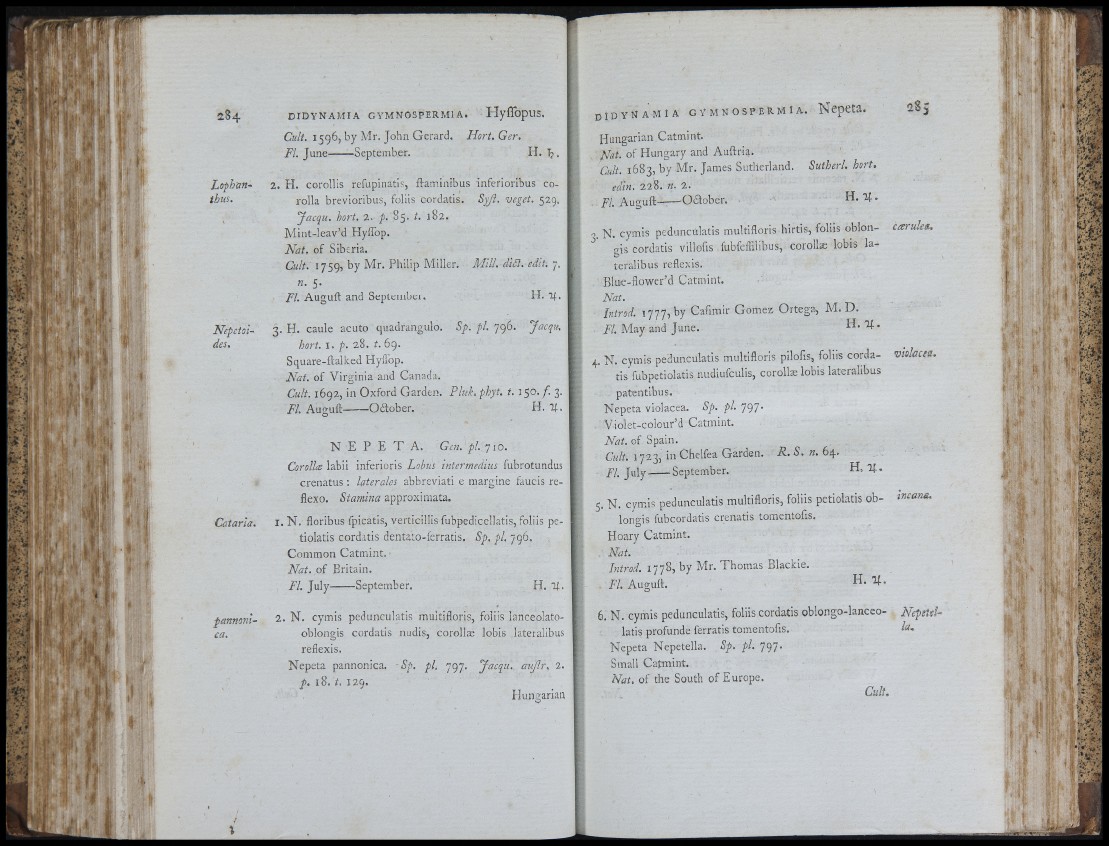 284 DIDYNAMIA GYMNOSPERMIA. Hyſſopus.
Cult. 1596, by Mr. John Gerard. Hort. Ger.
Fl. June——September. H. ♄.
Lophan-
thus.
2. H. corollis reſupinatis, ſtaminibus inferioribus co-
rolla brevioribus, foliis cordatis. Syſt. veget. 529.
Jacqu. hort. 2. p. 85. t. 182.
Mint-leav'd Hyſſop.
Nat. of Siberia.
Cult. 1759, by Mr. Philip Miller. Mill. dict. edit. 7.
n. 5.
Fl. Auguſt and September. H. ♃.
Nepetoi-
des.
3. H. caule acuto quadrangulo. Sp. pl. 796. Jacqu.
hort. 1. p. 28. t. 69.
Square-ſtalked Hyſſop.
Nat. of Virginia and Canada.
Cult. 1692, in Oxford Garden. Pluk. phyt. t. 150. f. 3.
Fl. Auguſt——October. H. ♃.
NEPETA. Gen. pl. 710.
Corollæ labii inferioris Lobus intermedius ſubrotundus
crenatus: laterales abbreviati e margine faucis re-
flexo. Stamina approximata.
Cataria.
1. N. floribus ſpicatis, verticillis ſubpedicellatis, foliis pe-
tiolatis cordatis dentato-ſerratis. Sp. pl. 796.
Common Catmint.
Nat. of Britain.
Fl. July——September. H. ♃.
pannoni-
ca.
2. N. cymis pedunculatis multifloris, foliis lanceolato-
oblongis cordatis nudis, corollæ lobis lateralibus
reflexis.
Nepeta pannonica. Sp. pl. 797. Jacqu. auſtr. 2.
p. 18. t. 129.
Hungarian
DIDYNAMIA GYMNOSPERMIA. Nepeta. 285
Hungarian Catmint.
Nat. of Hungary and Auſtria.
Cult. 1683, by Mr. James Sutherland. Sutherl. hort.
edin. 228. n. 2.
Fl. Auguſt——October. H. ♃.
3. N. cymis pedunculatis multifloris hirtis, foliis oblon-
gis cordatis villoſis ſubſeſſilibus, corollæ lobis la-
teralibus reflexis.
cærulea.
Blue-flower'd Catmint.
Nat.
Introd. 1777, by Caſimir Gomez Ortega, M. D.
Fl. May and June. H. ♃.
4. N. cymis pedunculatis multifloris piloſis, foliis corda-
tis ſubpetiolatis nudiuſculis, corollæ lobis lateralibus
patentibus.
violacea.
Nepeta violacea. Sp. pl. 797.
Violet-colour'd Catmint.
Nat. of Spain.
Cult. 1723, in Chelſea Garden. R. S. n. 64.
Fl. July——September. H. ♃.
5. N. cymis pedunculatis multifloris, foliis petiolatis ob-
longis ſubcordatis crenatis tomentoſis.
incana.
Hoary Catmint.
Nat.
Introd. 1778, by Mr. Thomas Blackie.
Fl. Auguſt. H. ♃.
6. N. cymis pedunculatis, foliis cordatis oblongo-lanceo-
latis profunde ſerratis tomentoſis.
Nepetel-
la.
Nepeta Nepetella. Sp. pl. 797.
Small Catmint.
Nat. of the South of Europe.
Cult.